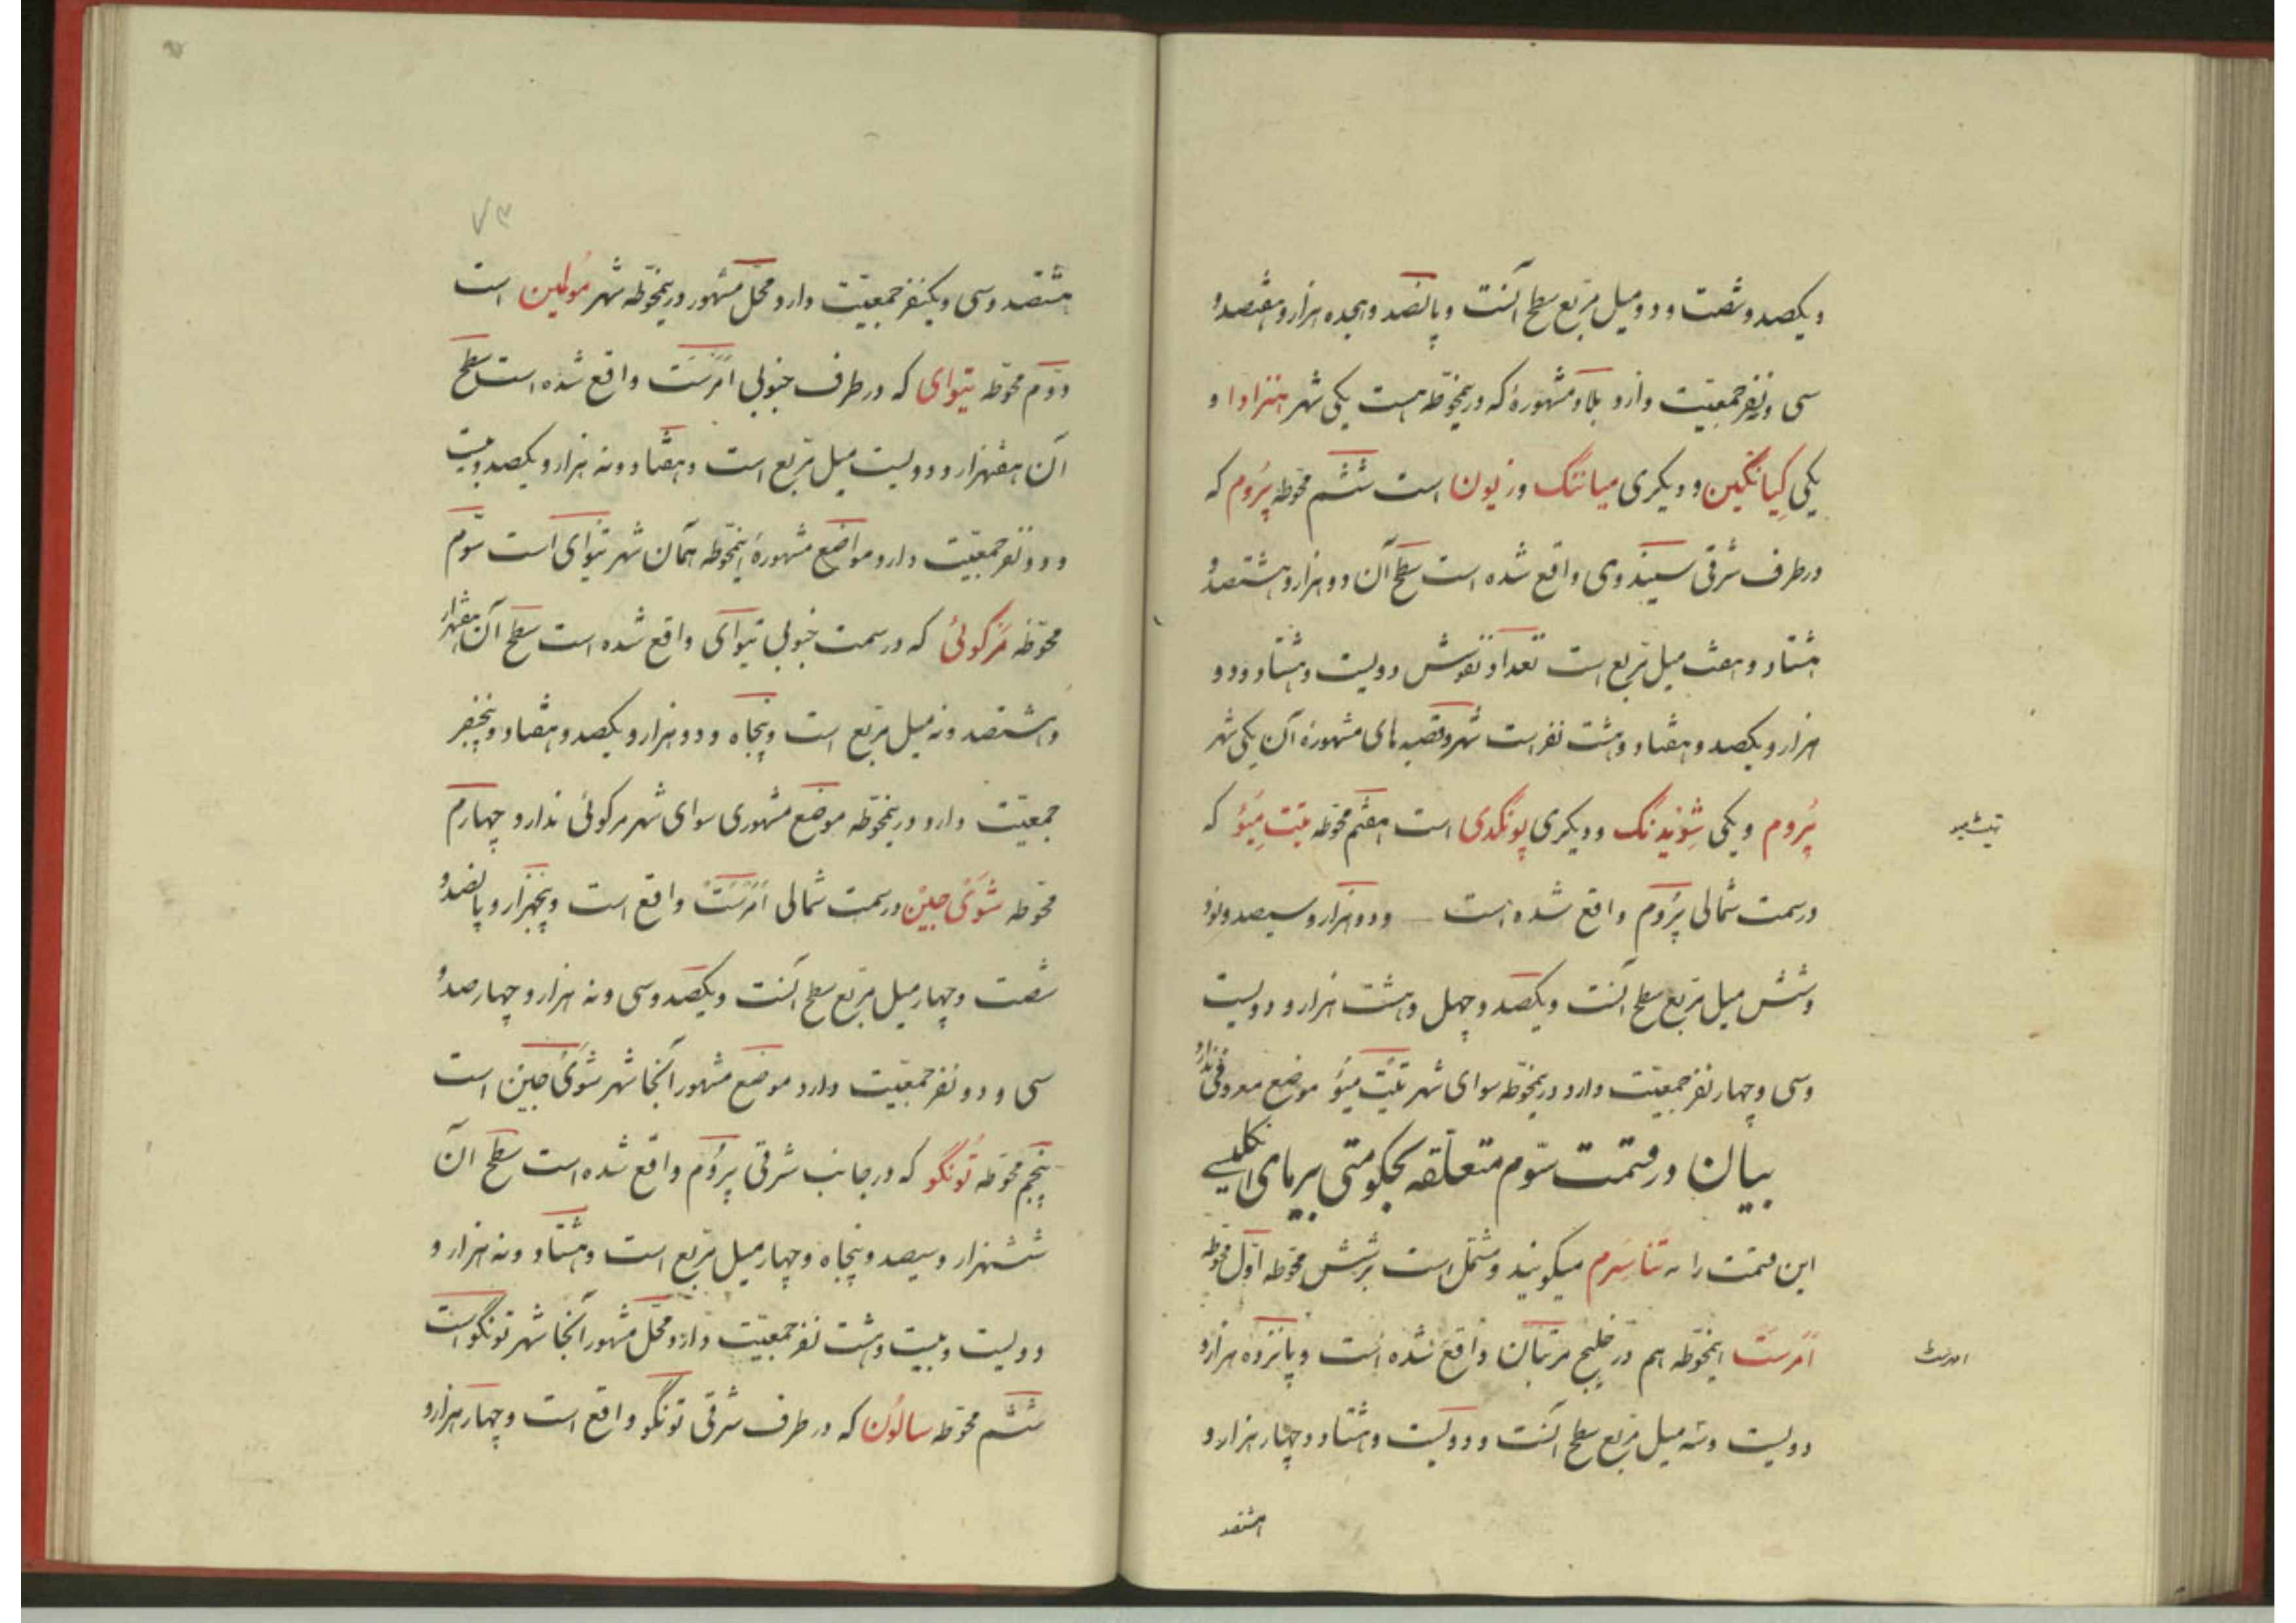 و یکصد و شصت و دو میل مربع سطح آنست و پانصد و هیجده هزار و هفتصد و
سی و نه نفر جمعیت دارد بلاد مشهورهٔ که در ینمحوّطه هست یکی شهر هنزادا و
یکی کیانگین و دیگری میانتنگ و زیون است ششم محوّطه پُرُوم که
در طرف شرقی سیندوی واقع شده است سطح آن دو هزار و هشتصد و
هشتاد و هفت میل مربع است تعداد نفوش دویست و هشتاد و دو
هزار و یکصد و هفتاد و هشت نفر است شهر و قصبه های مشهورهٔ آن یکی شهر
پُرُوم و یکی شِوْیْدنگ و دیگری پونگدی است هفتم محوّطه تیَت مِیُو که
تیت میو
در سمت شمالی پُرُوم واقع شده است و دو هزار و سیصد و نود
و شش میل مربع سطح آنست و یکصد و چهل و هشت هزار و دویست
و سی و چهار نفر جمعیّت دارد در ینمحوّطه سوای شهر تیَت میُو موضع معروفی ندارد
بیان در قسمت سوّم متعلّقه بحکومتی بیرمای انگلیسی
این قسمت را تناسِرم میگویند و مشتمل است بر شش محوّطه اوّل محوّطه
اَمرست اینمحوّطه هم در خلیج مرتبان واقع شده است و پانزده هزار و
امرست
دویست و سه میل مربع سطح آنست و دویست و هشتاد و چهار هزار و
هشتصد
۷۳
هشتصد و سی و یکنفر جمعیّت دارد محلّ مشهور در ینمحوّطه شهر مُولمین است
دوّم محوّطه تیوای که در طرف جنوبی اَمرست واقع شده است سطح
آن هفتهزار و دویست میل مربع است و هفتاد و نه هزار و یکصد و بیست
و دو نفر جمعیّت دارد مواضع مشهورهٔ اینمحوّطه همان شهر تیوای است سوّم
محوّطه مَرگوئی که در سمت جنوبی تیوای واقع شده است سطح آن هفتهزار
و هشتصد و نه میل مربع است و پنجاه و دو هزار و یکصد و هفتاد و پنجنفر
جمعیّت دارد و در ینمحوّطه موضع مشهوری سوای شهر مرگوئی ندارد چهارم
محوّطه شوَیْ جین در سمت شمالی اَمرست واقع است و پنجهزار و پانصد و
شصت و چهار میل مربع سطح آنست و یکصد و سی و نه هزار و چهار صد و
سی و دو نفر جمعیّت دارد موضع مشهور آنجا شهر شوَیْ جین است
پنجم محوّطه تُونگو که در جانب شرقی پرُوم واقع شده است سطح آن
ششهزار و سیصد و پنجاه و چهار میل مربع است و هشتاد و نه هزار و
دویست و بیست و هشت نفر جمعیّت دارد و محلّ مشهور آنجا شهر تونگو است
ششم محوّطه سالوُن که در طرف شرقی تونگو واقع است و چهار هزار و